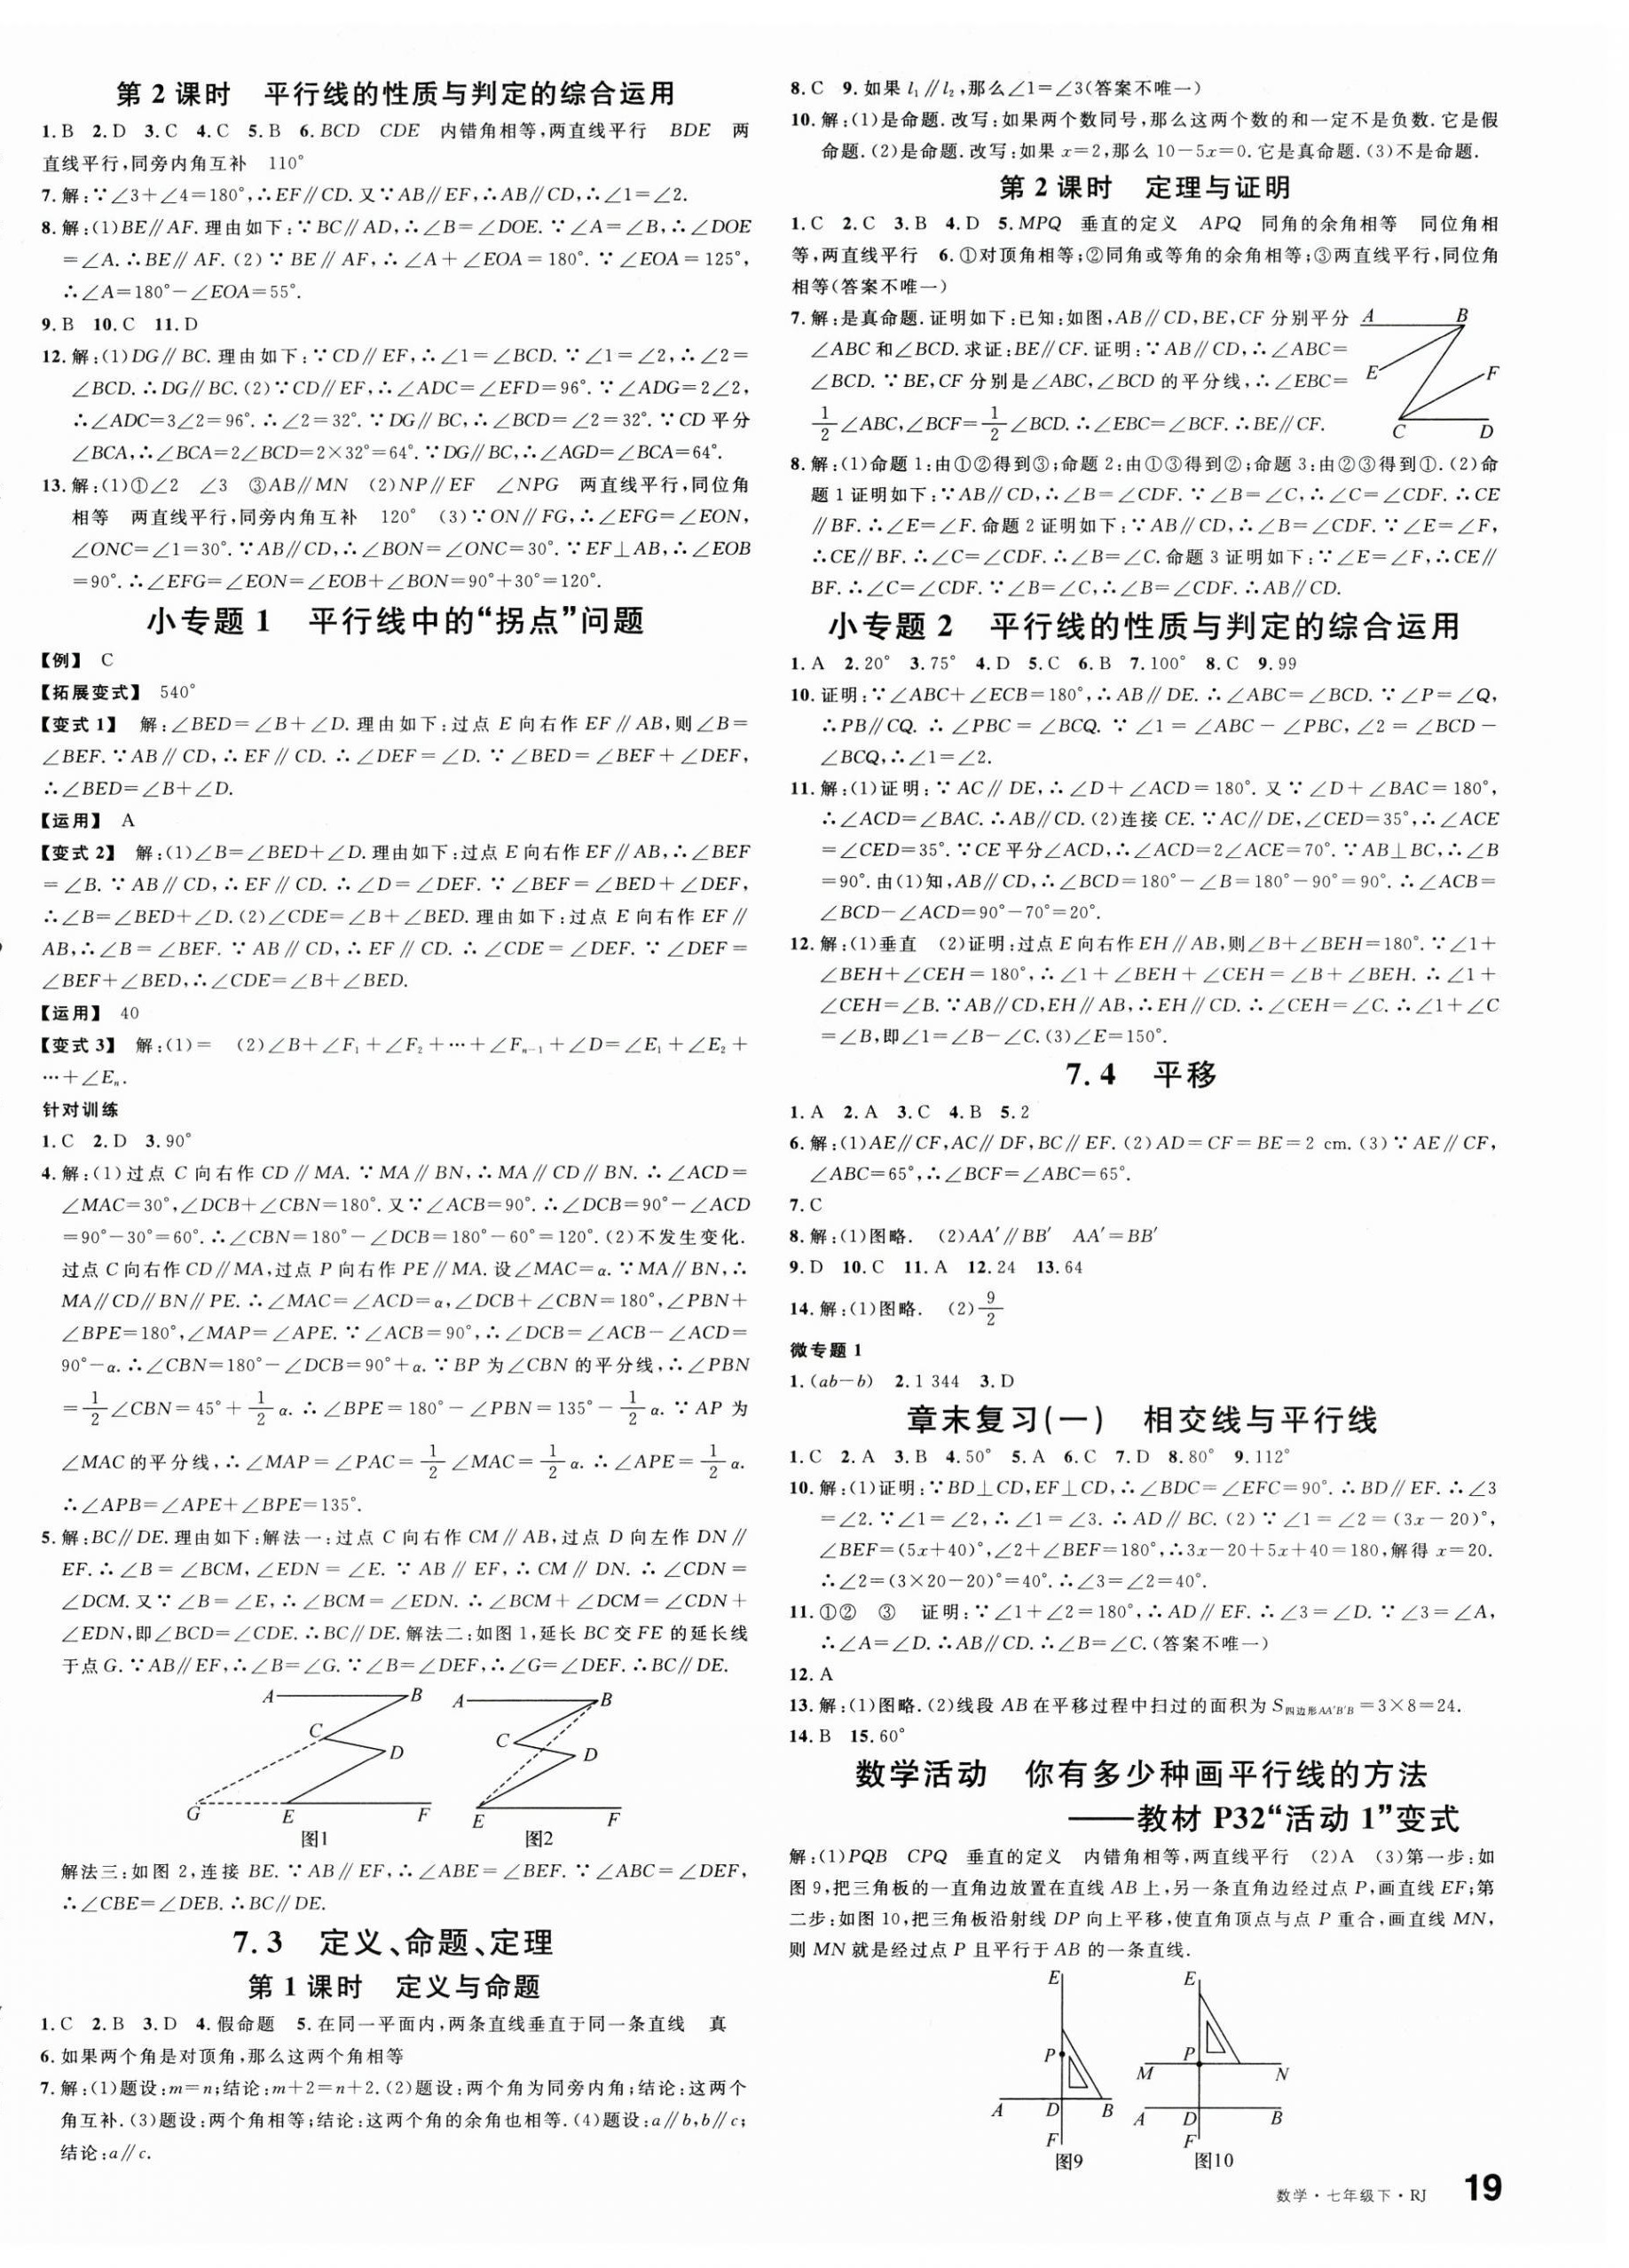 第 2 课时　平行线的性质与判定的综合运用
1. B　2. D　3. C　4. C　5. B　6. BCD　CDE　内错角相等,两直线平行　BDE　两
直线平行,同旁内角互补　110°
7. 解:∵∠3+∠4=180°,∴EF∥CD. 又∵AB∥EF,∴AB∥CD,∴∠1=∠2.
8. 解:(1)BE∥AF. 理由如下:∵BC∥AD,∴∠B=∠DOE. ∵∠A=∠B,∴∠DOE
=∠A. ∴BE∥AF. (2)∵BE∥AF,∴∠A+∠EOA=180°. ∵∠EOA=125°,
∴∠A=180°-∠EOA=55°.
9. B　10. C　11. D
12. 解:(1)DG∥BC. 理由如下:∵CD∥EF,∴∠1=∠BCD. ∵∠1=∠2,∴∠2=
∠BCD. ∴DG∥BC. (2)∵CD∥EF,∴∠ADC=∠EFD=96°. ∵∠ADG=2∠2,
∴∠ADC=3∠2=96°. ∴∠2=32°. ∵DG∥BC,∴∠BCD=∠2=32°. ∵CD 平分
∠BCA,∴∠BCA=2∠BCD=2×32°=64°. ∵DG∥BC,∴∠AGD=∠BCA=64°.
13. 解:(1)①∠2　∠3　③AB∥MN　(2)NP∥EF　∠NPG　两直线平行,同位角
相等　两直线平行,同旁内角互补　120°　(3)∵ON∥FG,∴∠EFG=∠EON,
∠ONC=∠1=30°. ∵AB∥CD,∴∠BON=∠ONC=30°. ∵EF⊥AB,∴∠EOB
=90°. ∴∠EFG=∠EON=∠EOB+∠BON=90°+30°=120°.
小专题 1　平行线中的“拐点”问题
【例】　C
【拓展变式】　540°
【变式 1】　解:∠BED=∠B+∠D. 理由如下:过点 E 向右作 EF∥AB,则∠B=
∠BEF. ∵AB∥CD,∴EF∥CD. ∴∠DEF=∠D. ∵∠BED=∠BEF+∠DEF,
∴∠BED=∠B+∠D.
【运用】　A
【变式 2】　解:(1)∠B=∠BED+∠D. 理由如下:过点 E 向右作 EF∥AB,∴∠BEF
=∠B. ∵AB∥CD,∴EF∥CD. ∴∠D=∠DEF. ∵∠BEF=∠BED+∠DEF,
∴∠B=∠BED+∠D. (2)∠CDE=∠B+∠BED. 理由如下:过点 E 向右作 EF∥
AB,∴∠B=∠BEF. ∵AB∥CD,∴EF∥CD. ∴∠CDE=∠DEF. ∵∠DEF=
∠BEF+∠BED,∴∠CDE=∠B+∠BED.
【运用】　40
【变式 3】　解:(1)=　(2)∠B+∠F₁+∠F₂+…+∠Fₙ₋₁+∠D=∠E₁+∠E₂+
…+∠Eₙ.
针对训练
1. C　2. D　3. 90°
4. 解:(1)过点 C 向右作 CD∥MA. ∵MA∥BN,∴MA∥CD∥BN. ∴∠ACD=
∠MAC=30°,∠DCB+∠CBN=180°. 又∵∠ACB=90°. ∴∠DCB=90°-∠ACD
=90°-30°=60°. ∴∠CBN=180°-∠DCB=180°-60°=120°. (2)不发生变化.
过点 C 向右作 CD∥MA,过点 P 向右作 PE∥MA. 设∠MAC=α. ∵MA∥BN,∴
MA∥CD∥BN∥PE. ∴∠MAC=∠ACD=α,∠DCB+∠CBN=180°,∠PBN+
∠BPE=180°,∠MAP=∠APE. ∵∠ACB=90°,∴∠DCB=∠ACB-∠ACD=
90°-α. ∴∠CBN=180°-∠DCB=90°+α. ∵BP 为∠CBN 的平分线,∴∠PBN
=1/2∠CBN=45°+1/2α. ∴∠BPE=180°-∠PBN=135°-1/2α. ∵AP 为
∠MAC 的平分线,∴∠MAP=∠PAC=1/2∠MAC=1/2α. ∴∠APE=1/2α.
∴∠APB=∠APE+∠BPE=135°.
5. 解:BC∥DE. 理由如下:解法一:过点 C 向右作 CM∥AB,过点 D 向左作 DN∥
EF. ∴∠B=∠BCM,∠EDN=∠E. ∵AB∥EF,∴CM∥DN. ∴∠CDN=
∠DCM. 又∵∠B=∠E,∴∠BCM=∠EDN. ∴∠BCM+∠DCM=∠CDN+
∠EDN,即∠BCD=∠CDE. ∴BC∥DE. 解法二:如图 1,延长 BC 交 FE 的延长线
于点 G. ∵AB∥EF,∴∠B=∠G. ∵∠B=∠DEF,∴∠G=∠DEF. ∴BC∥DE.
A B A B
C D C D
G E F E F
图1 图2
解法三:如图 2,连接 BE. ∵AB∥EF,∴∠ABE=∠BEF. ∵∠ABC=∠DEF,
∴∠CBE=∠DEB. ∴BC∥DE.
7.3　定义、命题、定理
第 1 课时　定义与命题
1. C　2. B　3. D　4. 假命题　5. 在同一平面内,两条直线垂直于同一条直线　真
6. 如果两个角是对顶角,那么这两个角相等
7. 解:(1)题设:m=n;结论:m+2=n+2. (2)题设:两个角为同旁内角;结论:这两个
角互补. (3)题设:两个角相等;结论:这两个角的余角也相等. (4)题设:a∥b,b∥c;
结论:a∥c.
8. C　9. 如果 l₁∥l₂,那么∠1=∠3(答案不唯一)
10. 解:(1)是命题. 改写:如果两个数同号,那么这两个数的和一定不是负数. 它是假
命题. (2)是命题. 改写:如果 x=2,那么 10-5x=0. 它是真命题. (3)不是命题.
第 2 课时　定理与证明
1. C　2. C　3. B　4. D　5. MPQ　垂直的定义　APQ　同角的余角相等　同位角相
等,两直线平行　6. ①对顶角相等;②同角或等角的余角相等;③两直线平行,同位角
相等(答案不唯一)
7. 解:是真命题. 证明如下:已知:如图,AB∥CD,BE,CF 分别平分
∠ABC 和∠BCD. 求证:BE∥CF. 证明:∵AB∥CD,∴∠ABC=
∠BCD. ∵BE,CF 分别是∠ABC,∠BCD 的平分线,∴∠EBC=
1/2∠ABC,∠BCF=1/2∠BCD. ∴∠EBC=∠BCF. ∴BE∥CF.
A B
E F
C D
8. 解:(1)命题 1:由①②得到③;命题 2:由①③得到②;命题 3:由②③得到①. (2)命
题 1 证明如下:∵AB∥CD,∴∠B=∠CDF. ∵∠B=∠C,∴∠C=∠CDF. ∴CE
∥BF. ∴∠E=∠F. 命题 2 证明如下:∵AB∥CD,∴∠B=∠CDF. ∵∠E=∠F,
∴CE∥BF. ∴∠C=∠CDF. ∴∠B=∠C. 命题 3 证明如下:∵∠E=∠F,∴CE∥
BF. ∴∠C=∠CDF. ∵∠B=∠C,∴∠B=∠CDF. ∴AB∥CD.
小专题 2　平行线的性质与判定的综合运用
1. A　2. 20°　3. 75°　4. D　5. C　6. B　7. 100°　8. C　9. 99
10. 证明:∵∠ABC+∠ECB=180°,∴AB∥DE. ∴∠ABC=∠BCD. ∵∠P=∠Q,
∴PB∥CQ. ∴∠PBC=∠BCQ. ∵∠1=∠ABC-∠PBC,∠2=∠BCD-
∠BCQ,∴∠1=∠2.
11. 解:(1)证明:∵AC∥DE,∴∠D+∠ACD=180°. 又∵∠D+∠BAC=180°,
∴∠ACD=∠BAC. ∴AB∥CD. (2)连接 CE. ∵AC∥DE,∠CED=35°,∴∠ACE
=∠CED=35°. ∵CE 平分∠ACD,∴∠ACD=2∠ACE=70°. ∵AB⊥BC,∴∠B
=90°. 由(1)知,AB∥CD,∴∠BCD=180°-∠B=180°-90°=90°. ∴∠ACB=
∠BCD-∠ACD=90°-70°=20°.
12. 解:(1)垂直　(2)证明:过点 E 向右作 EH∥AB,则∠B+∠BEH=180°. ∵∠1+
∠BEH+∠CEH=180°,∴∠1+∠BEH+∠CEH=∠B+∠BEH. ∴∠1+
∠CEH=∠B. ∵AB∥CD,EH∥AB,∴EH∥CD. ∴∠CEH=∠C. ∴∠1+∠C
=∠B,即∠1=∠B-∠C. (3)∠E=150°.
7.4　平移
1. A　2. A　3. C　4. B　5. 2
6. 解:(1)AE∥CF,AC∥DF,BC∥EF. (2)AD=CF=BE=2 cm. (3)∵AE∥CF,
∠ABC=65°,∴∠BCF=∠ABC=65°.
7. C
8. 解:(1)图略.　(2)AA′∥BB′　AA′=BB′
9. D　10. C　11. A　12. 24　13. 64
14. 解:(1)图略.　(2)9/2
微专题 1
1. (ab-b)　2. 1 344　3. D
章末复习(一)　相交线与平行线
1. C　2. A　3. B　4. 50°　5. A　6. C　7. D　8. 80°　9. 112°
10. 解:(1)证明:∵BD⊥CD,EF⊥CD,∴∠BDC=∠EFC=90°. ∴BD∥EF. ∴∠3
=∠2. ∵∠1=∠2,∴∠1=∠3. ∴AD∥BC. (2)∵∠1=∠2=(3x-20)°,
∠BEF=(5x+40)°,∠2+∠BEF=180°,∴3x-20+5x+40=180,解得 x=20.
∴∠2=(3×20-20)°=40°. ∴∠3=∠2=40°.
11. ①②　③　证明:∵∠1+∠2=180°,∴AD∥EF. ∴∠3=∠D. ∵∠3=∠A,
∴∠A=∠D. ∴AB∥CD. ∴∠B=∠C. (答案不唯一)
12. A
13. 解:(1)图略. (2)线段 AB 在平移过程中扫过的面积为 S四边形AA′B′B=3×8=24.
14. B　15. 60°
数学活动　你有多少种画平行线的方法
——教材 P32“活动 1”变式
解:(1)PQB　CPQ　垂直的定义　内错角相等,两直线平行　(2)A　(3)第一步:如
图 9,把三角板的一直角边放置在直线 AB 上,另一条直角边经过点 P,画直线 EF;第
二步:如图 10,把三角板沿射线 DP 向上平移,使直角顶点与点 P 重合,画直线 MN,
则 MN 就是经过点 P 且平行于 AB 的一条直线.
E E
P P
M N
A D B A D B
F F
图9 图10
数学·七年级下·RJ　19